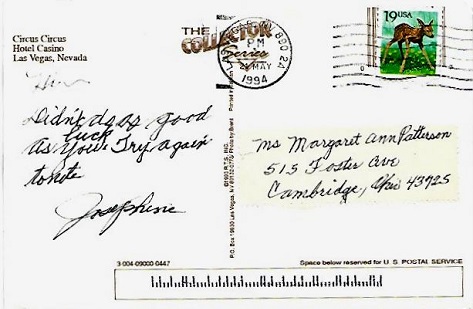 Circus Circus
Hotel Casino
Las Vegas, Nevada
Hi
Didn't do as good
luck
As you. Try again
tonite
Josephine
3-004-09000-0447
THE
COLLECTOR
Series
LAS VEGAS, NV 890 2A
PM
MAY
1994
19 USA
Ms Margaret Ann Patterson
515 Foster Ave
Cambridge, Ohio 43725
Space below reserved for U.S. POSTAL SERVICE